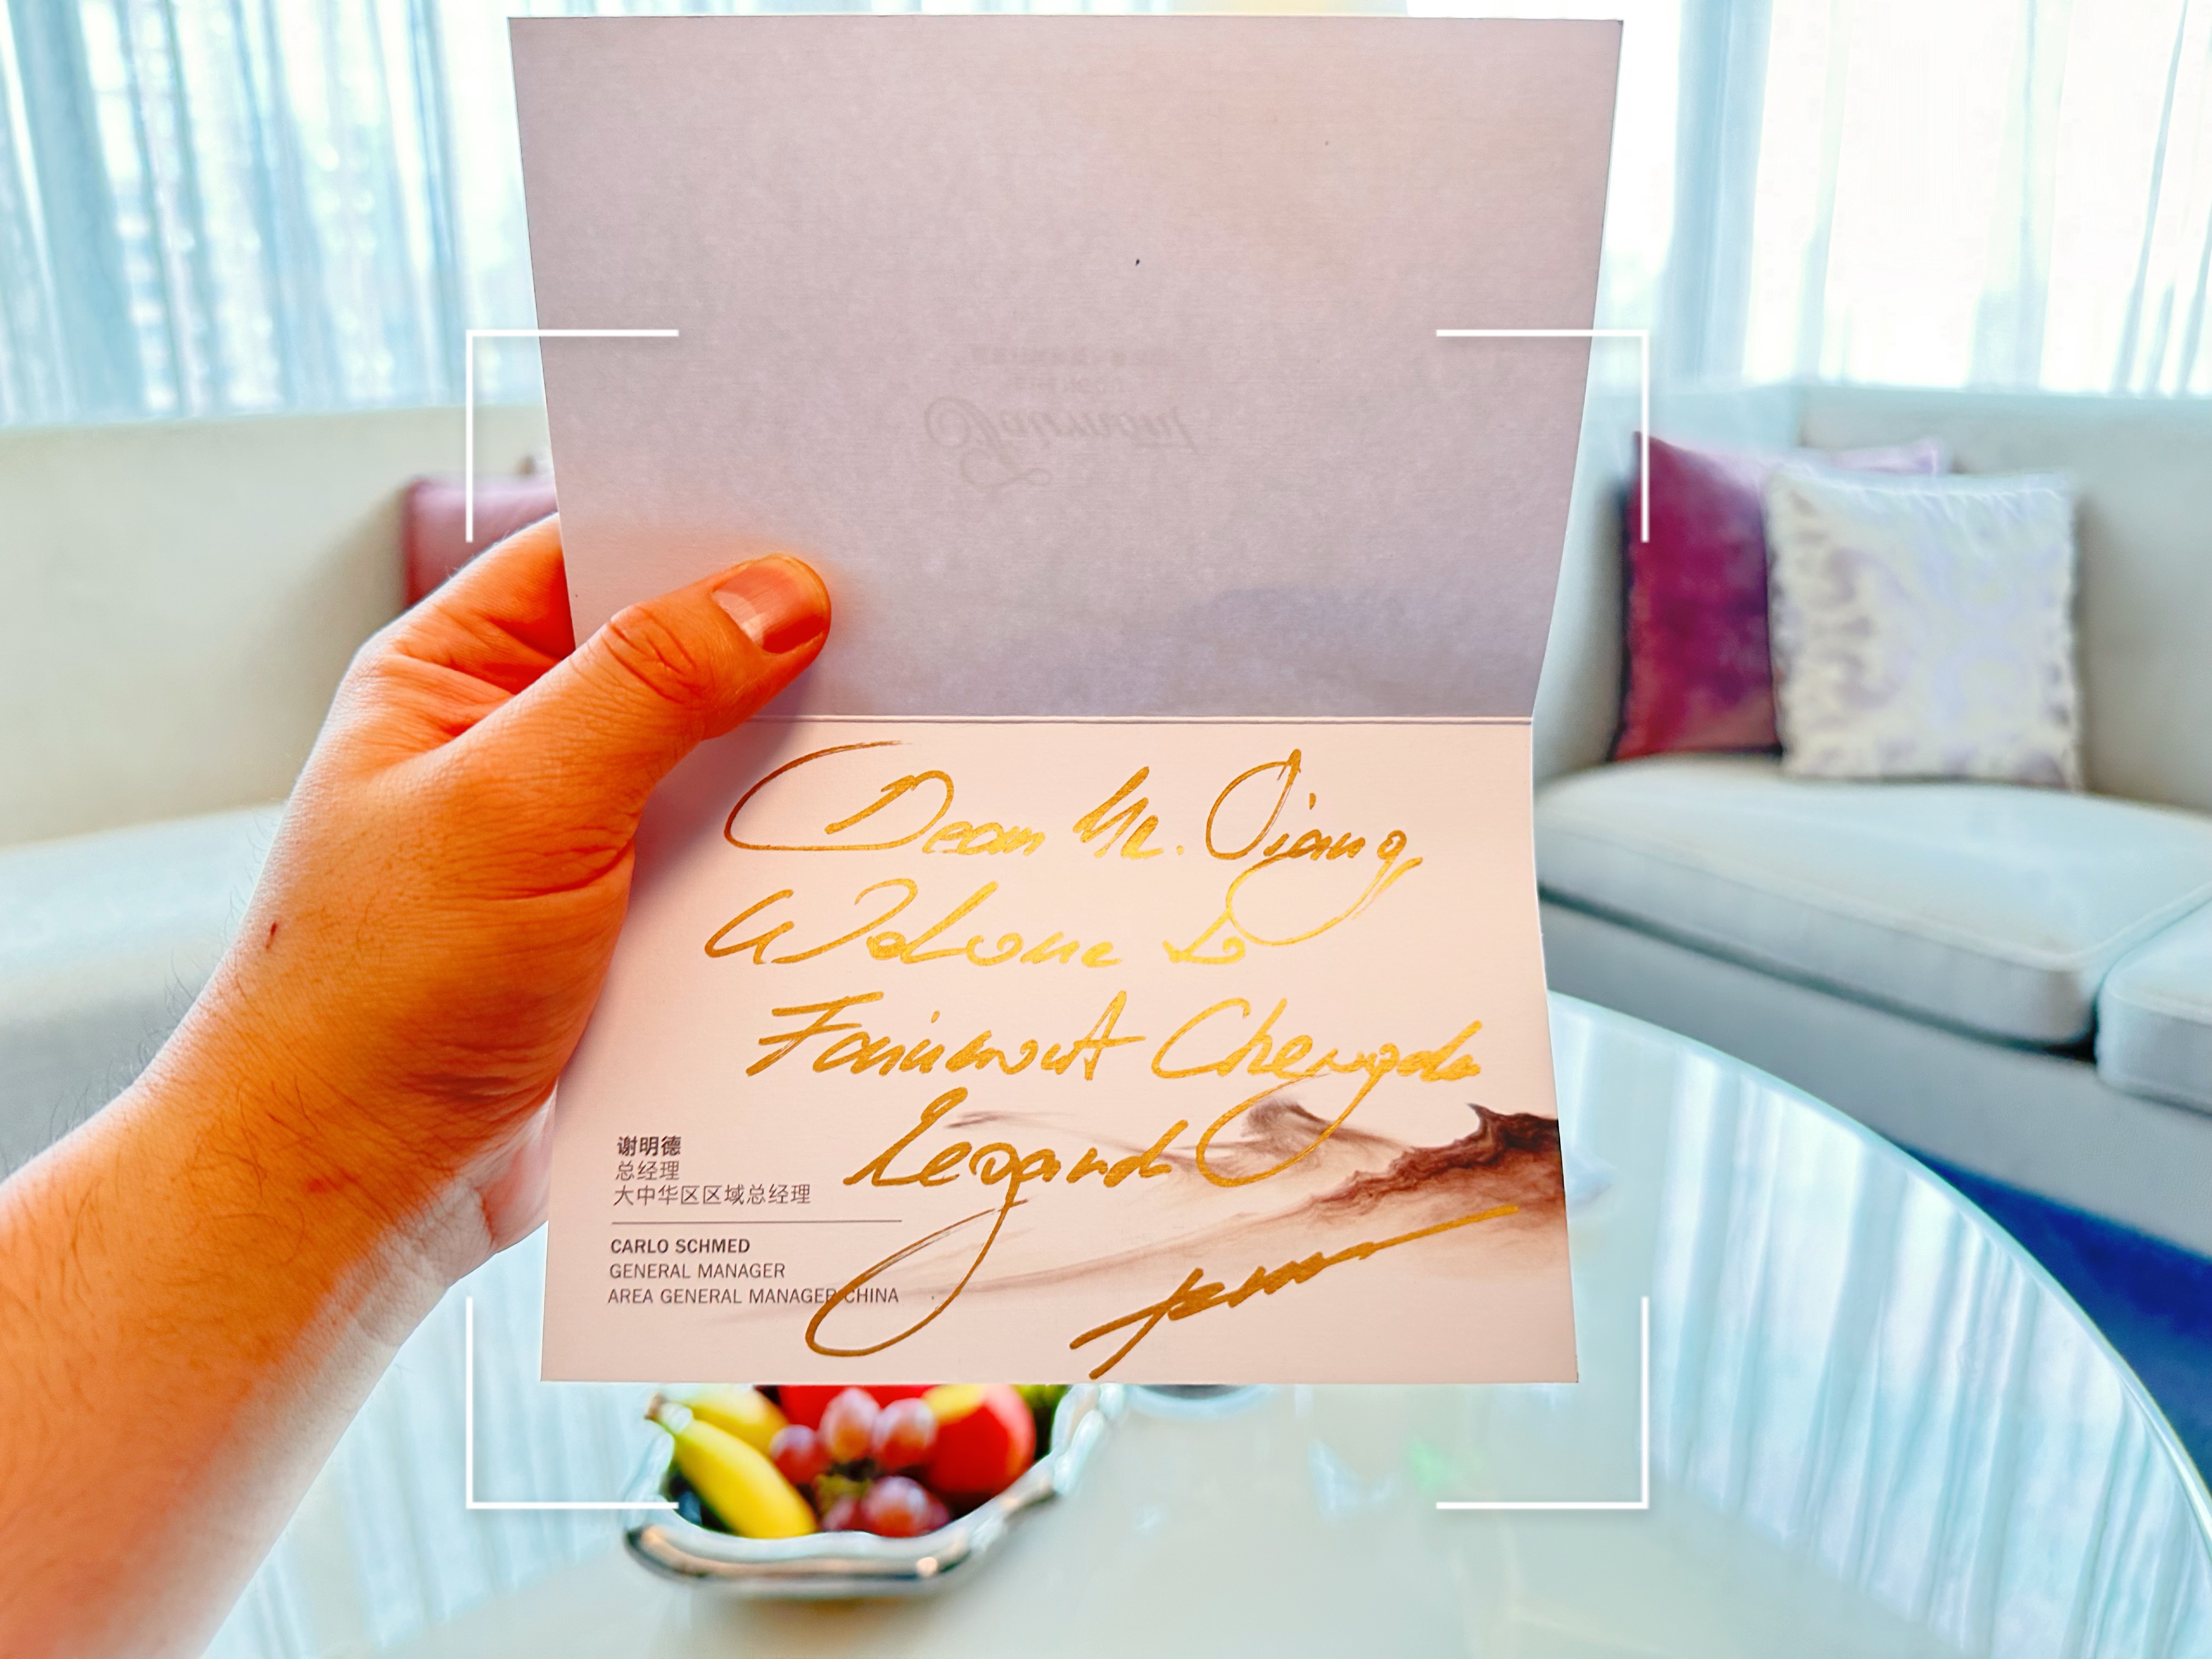 Dear Mr. Qiang
Welcome to
Fairmont Chengdu
Regard
谢明德
总经理
大中华区区域总经理
CARLO SCHMED
GENERAL MANAGER
AREA GENERAL MANAGER CHINA
Fairmont